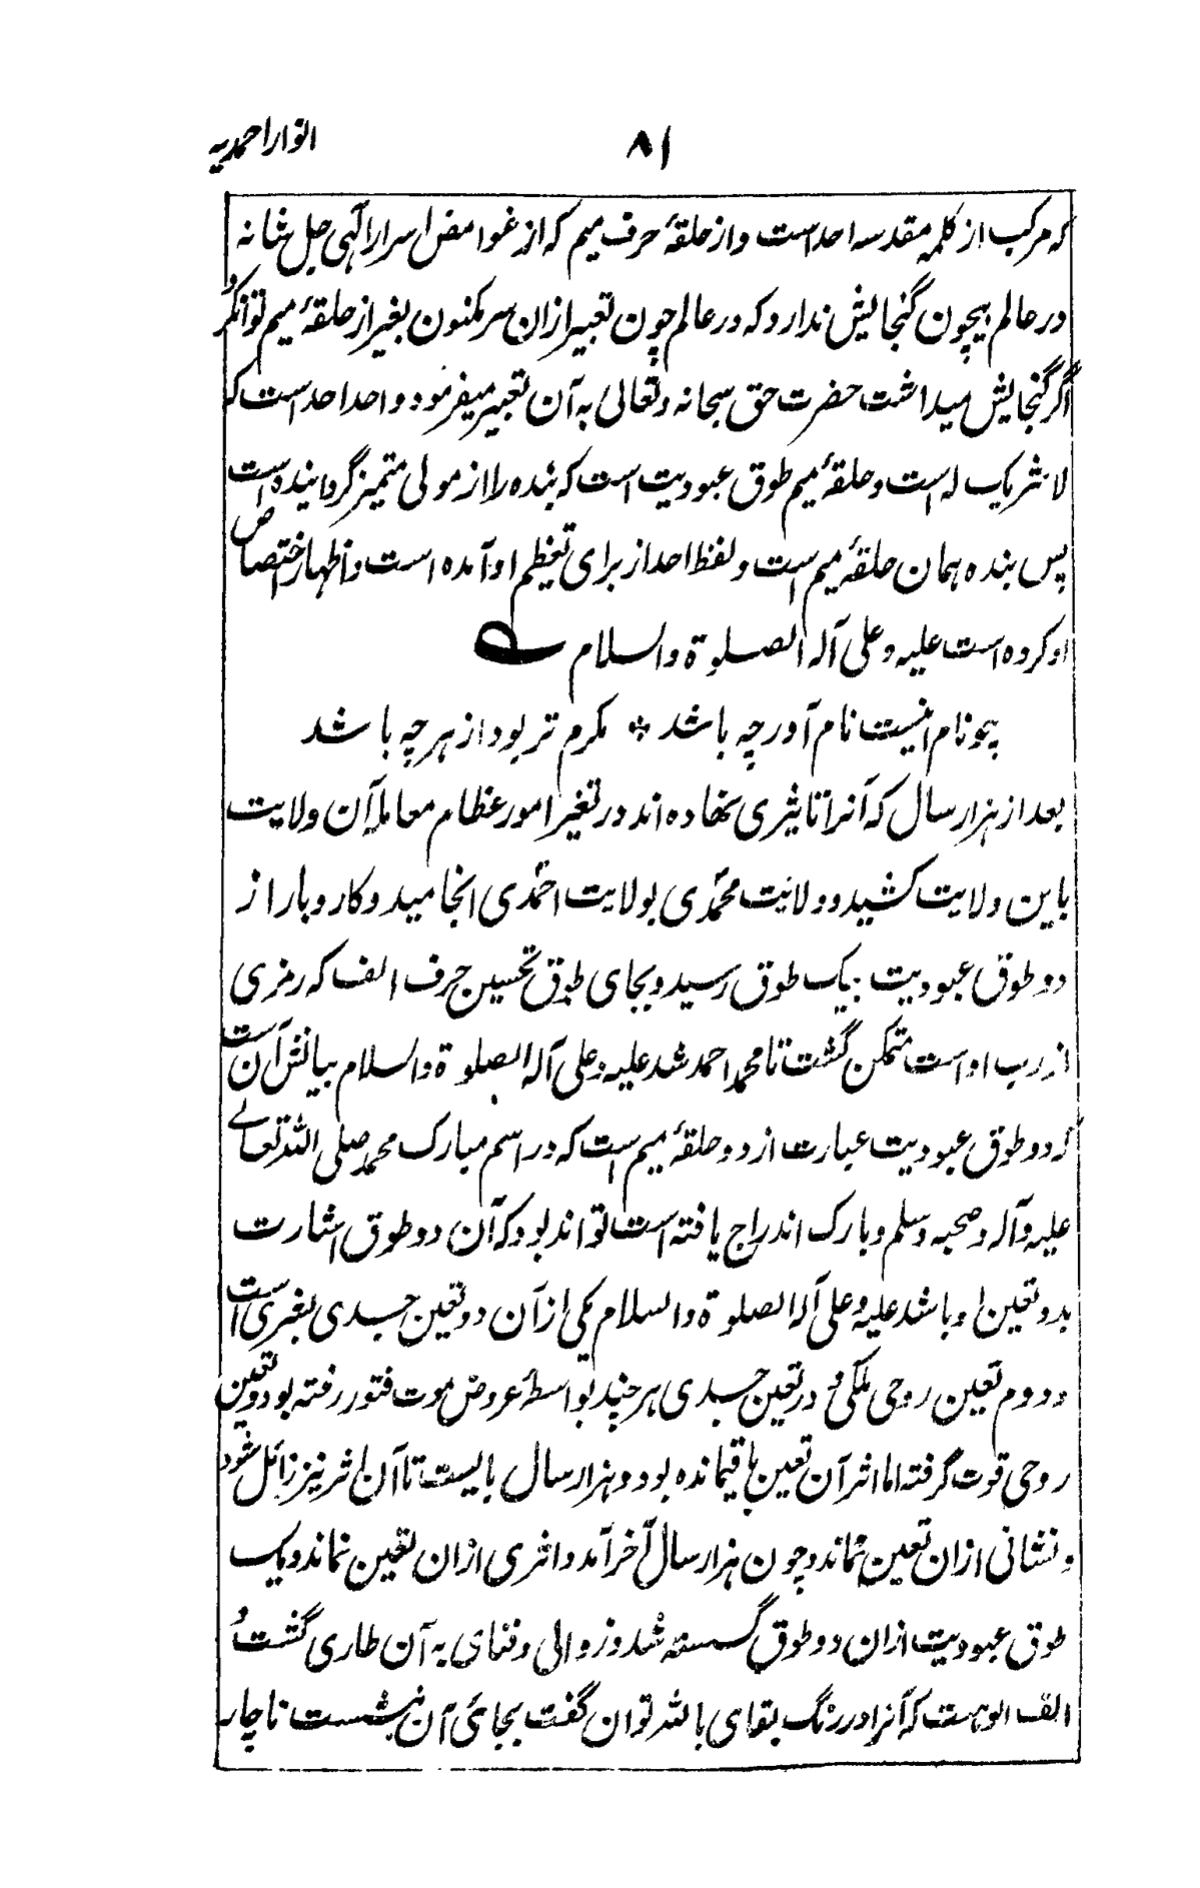 ۸۱
انوار احمدیہ
که مرکب از کلمه مقدسه احد است و از حلقۂ حرف میم که از غوامض اسرار الٰهی جل شانه
در عالم بیچون گنجایش ندارد که در عالم چون تعبیر ازان سر مکنون بغیر از حلقۂ میم توانکرد و
اگر گنجایش میداشت حضرت حق سبحانه و تعالی به آن تعبیر میفرمود و احد احد است که
لا شریک له است و حلقۂ میم طوق عبودیت است که بنده را از مولی متمیز گردانیده است
پس بنده همان حلقۂ میم است و لفظ احد از برای تعظیم او آمده است و اظهار اختصاص
او کرده است علیه و علی آله الصلوة والسلام
چو نام اینست نام آور چه باشد * مکرم تر بود از هر چه باشد
بعد از هزار سال که آنرا تاثیری نهاده اند در تغیر امور عظام معامله آن ولایت
باین ولایت کشید و ولایت محمدی بولایت احمدی انجامید و کار و بار از
دو طوق عبودیت بیک طوق رسید و بجای طوق نخستین حرف الف که رمزی
از رب او است متمکن گشت تا محمد احمد شد علیه و علی آله الصلوة والسلام بیانش آن است
که دو طوق عبودیت عبارت از دو حلقۂ میم است که در اسم مبارک محمد صلی الله تعالے
علیه و آله و صحبه و سلم و بارک اندراج یافته است تواند بود که آن دو طوق اشارت
بدو تعین او باشد علیه و علی آله الصلوة والسلام یکی از آن دو تعین جسدی بشری است
و دوم تعین روحی ملکی و در تعین جسدی هر چند بواسطۂ عروض موت فتور رفته بود و تعین
روحی قوت گرفته اما اثر آن تعین باقیمانده بود و هزار سال بایست تا آن اثر نیز زائل شود
و نشانی ازان تعین نماند و چون هزار سال آخر آمد و اثری ازان تعین نماند و یک
طوق عبودیت ازان دو طوق گسسته شد و زوالی و فنای به آن طاری گشت و
الف الوهیت که آنرا در رنگ بقای بالله توان گفت بجای آن نشست ناچار